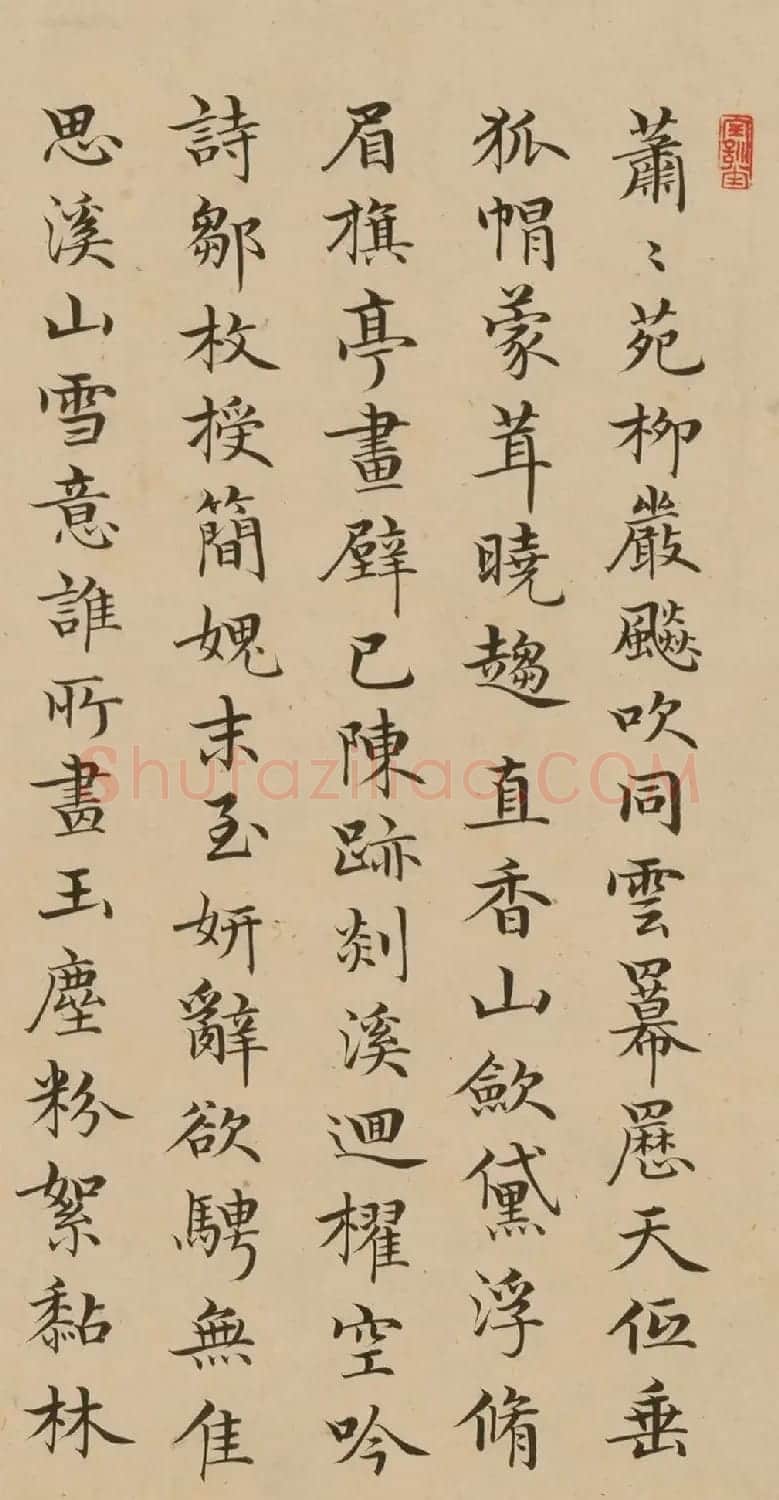 蕭〻苑柳嚴飈吹同雲羃羃天低垂
狐帽蒙茸曉趨直香山斂黛浮脩
眉旗亭畫壁已陳跡剡溪迴櫂空吟
詩鄒枚授簡媿末至妍辭欲騁無佳
思溪山雪意誰所畫玉塵粉絮黏林
Shufaziliao.COM